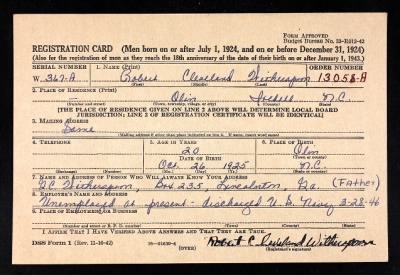 FORM APPROVED
Budget Bureau No. 33-R012-42
REGISTRATION CARD (Men born on or after July 1, 1924, and on or before December 31, 1924)
(Also for the registration of men as they reach the 18th anniversary of the date of their birth on or after January 1, 1943.)
SERIAL NUMBER 1. NAME (Print) ORDER NUMBER
W. 367-A Robert Cleveland Witherspoon 13058-A
(First) (Middle) (Last)
2. PLACE OF RESIDENCE (Print)
Olin Iredell N.C.
(Number and street) (Town, township, village, or city) (County) (State)
[THE PLACE OF RESIDENCE GIVEN ON LINE 2 ABOVE WILL DETERMINE LOCAL BOARD
JURISDICTION; LINE 2 OF REGISTRATION CERTIFICATE WILL BE IDENTICAL]
3. MAILING ADDRESS
Same
[Mailing address if other than place indicated on line 2. If same, insert word same]
4. TELEPHONE 5. AGE IN YEARS 6. PLACE OF BIRTH
20 Olin
DATE OF BIRTH (Town or county)
Oct. 26 1925 N.C.
(Exchange) (Number) (Mo.) (Day) (Yr.) (State or country)
7. NAME AND ADDRESS OF PERSON WHO WILL ALWAYS KNOW YOUR ADDRESS
Witherspoon, Box 235, Ga. (Father)
8. EMPLOYER'S NAME AND ADDRESS
Unemployed at present - discharged U.S. Navy 3-28-46
9. PLACE OF EMPLOYMENT OR BUSINESS
(Number and street or R. F. D. number) (Town) (County) (State)
I AFFIRM THAT I HAVE VERIFIED ABOVE ANSWERS AND THAT THEY ARE TRUE.
DSS Form 1 (Rev. 11-16-42) (OVER) Robert Cleveland Witherspoon
(Registrant's signature)